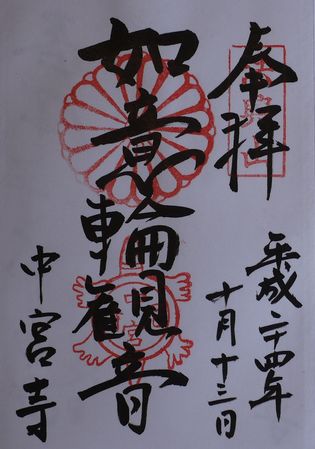 奉拝
平成二十四年
十月十三日
如意輪観音
中宮寺